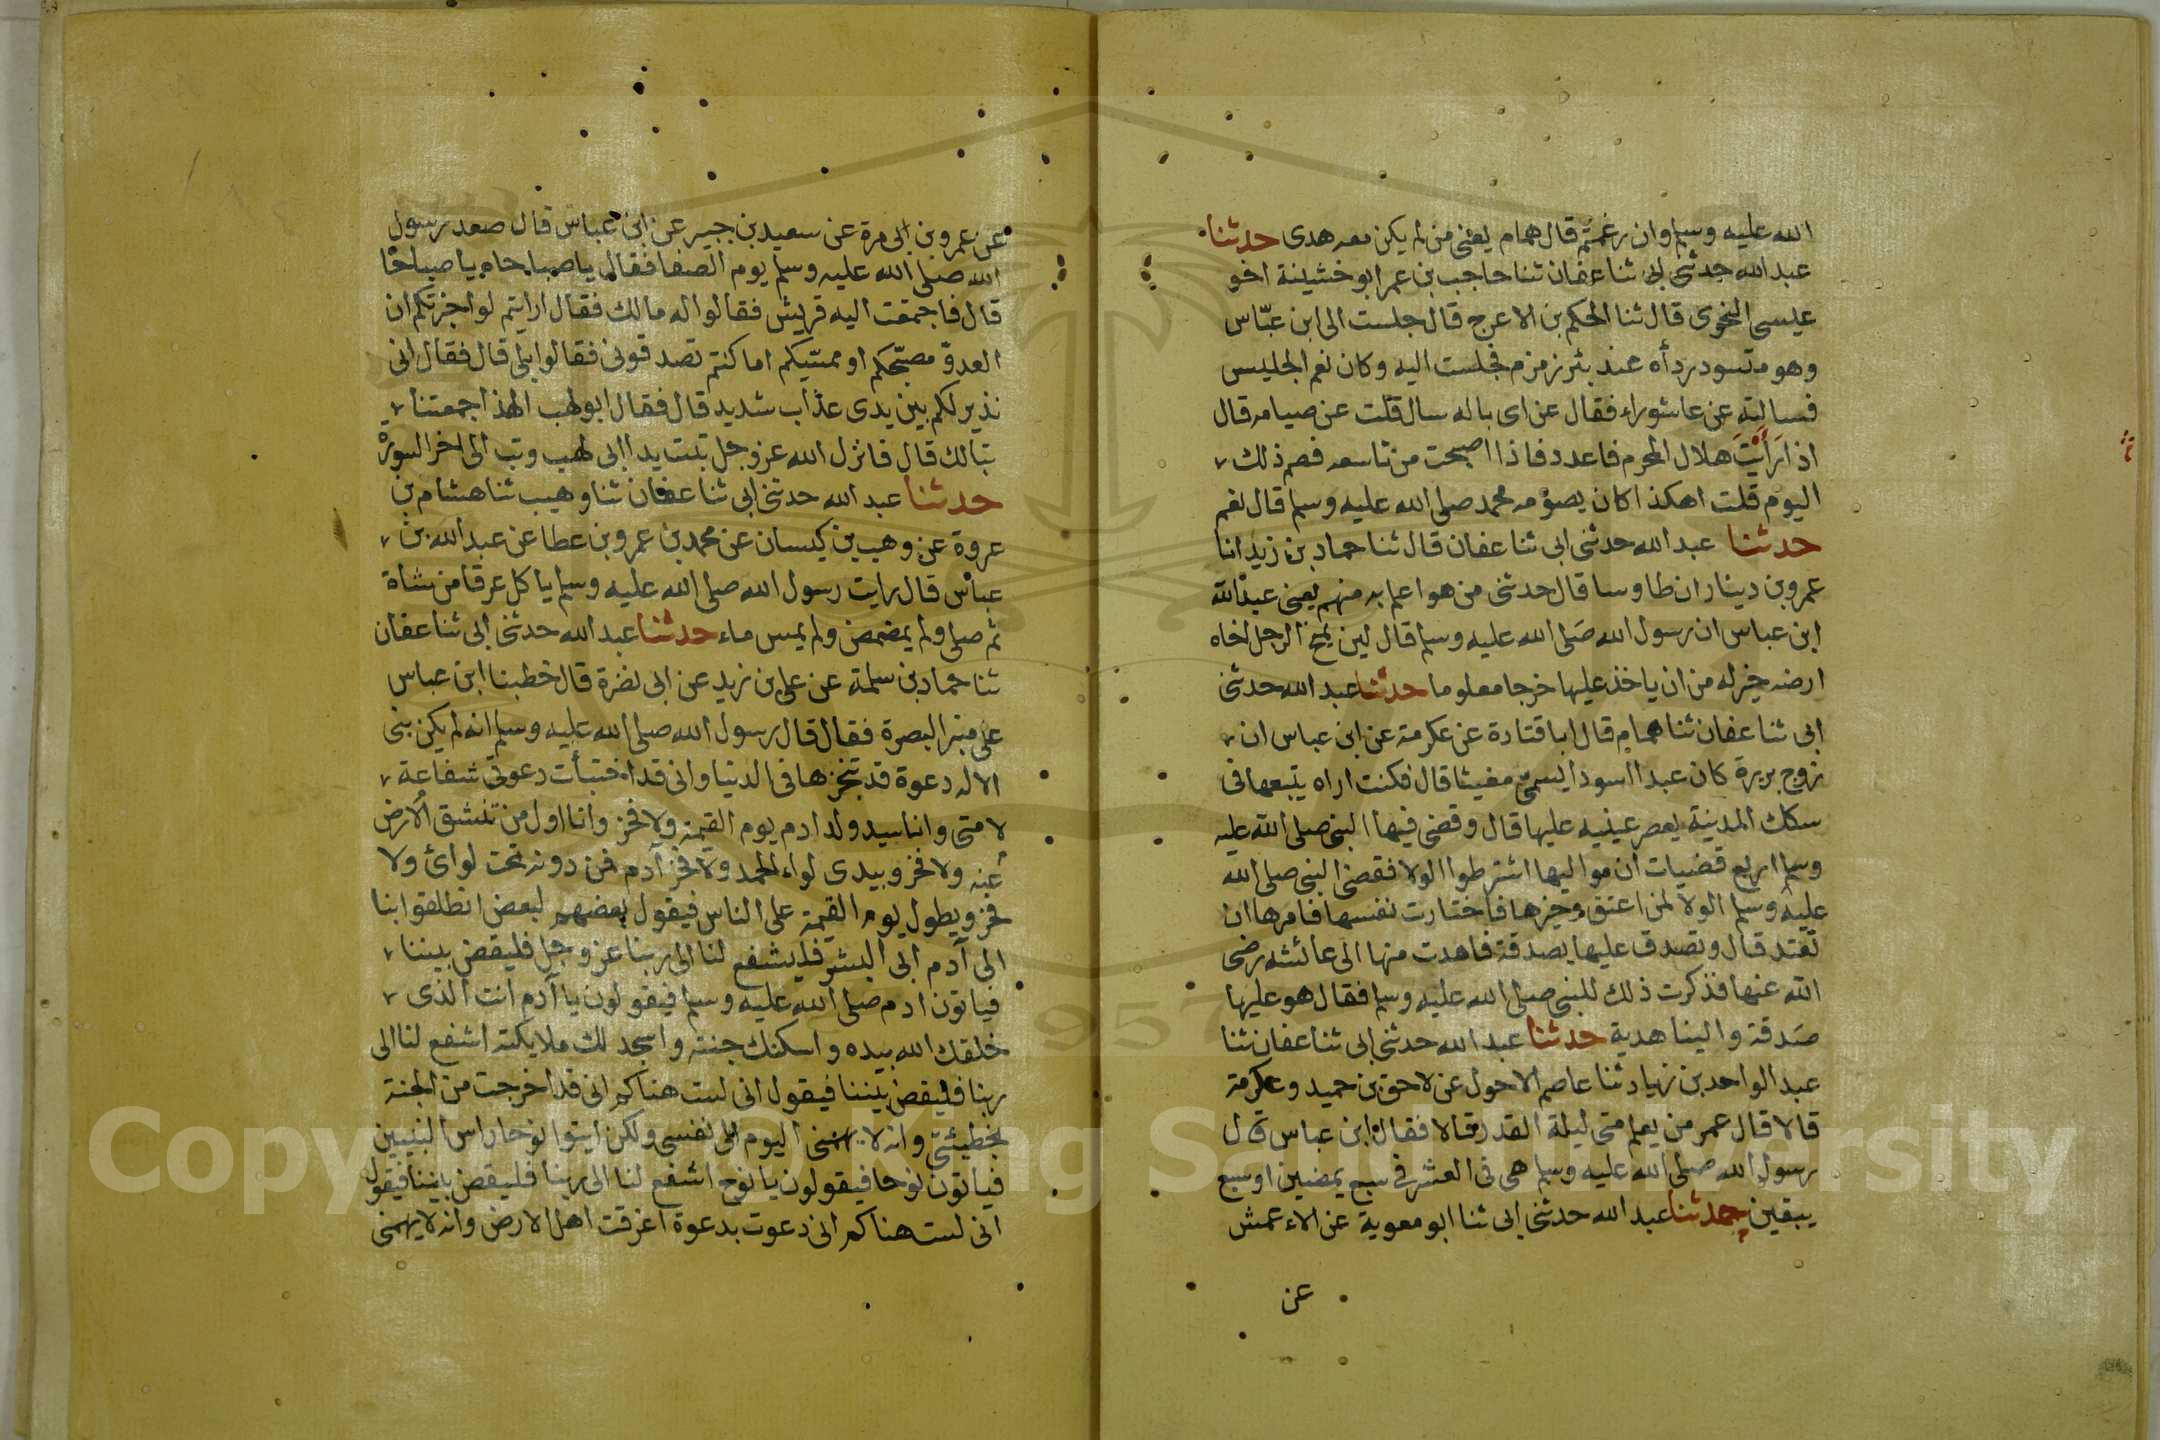 الله عليه وسلم وان رغمتم قال همام يعنى من لم يكن معه هدى حدثنا
عبد الله حدثنى ابى ثنا عفان ثنا حاجب بن عمر ابو خشينة اخو
عيسى النحوى قال ثنا الحكم بن الاعرج قال جلست الى ابن عباس
وهو متسود رداه عند بئر زمزم فجلست اليه وكان نعم الجليس
فسالته عن عاشوراء فقال عن اى باله سال قلت عن صيامه قال
اذا رَأَيْتَ هلال المحرم فاعدد فاذا اصبحت من تاسعه فصم ذلك
اليوم قلت اهكذا كان يصومه محمد صلى الله عليه وسلم قال نعم
حدثنا عبد الله حدثنى ابى ثنا عفان قال ثنا حماد بن زيد انا
عمرو بن دينار ان طاوسا قال حدثنى من هو اعلم به منهم يعنى عبد الله
ابن عباس ان رسول الله صلى الله عليه وسلم قال لين يمنح الرجل اخاه
ارضه خير له من ان ياخذ عليها خرجا معلوما حدثنا عبد الله حدثنى
ابى ثنا عفان ثنا همام قال ابا قتادة عن عكرمة عن ابن عباس ان
زوج بريرة كان عبدا اسودا يسمى مغيثا قال فكنت اراه يتبعها فى
سكك المدينة يعصر عينيه عليها قال وقضى فيها النبى صلى الله عليه
وسلم اربع قضيات ان مواليها اشترطوا الولا فقضى النبى صلى الله
عليه وسلم الولا لمن اعتق وخيرها فاختارت نفسها فامرها ان
تعتد قال وتصدق عليها بصدقة فاهدت منها الى عائشه رضى
الله عنها فذكرت ذلك للنبى صلى الله عليه وسلم فقال هو عليها
صدقة والينا هدية حدثنا عبد الله حدثنى ابى ثنا عفان ثنا
عبد الواحد بن زياد ثنا عاصم الاحول عن لاحق بن حميد وعكرمة
قالا قال عمر من يعلم متى ليلة القدر قالا فقال ابن عباس قال
رسول الله صلى الله عليه وسلم هى فى العشر فى سبع يمضين او سبع
يبقين حدثنا عبد الله حدثنى ابى ثنا ابو معوية عن الاعمش
عن
عن عمرو بن ابى مرة عن سعيد بن جبير عن ابن عباس قال صعد رسول
الله صلى الله عليه وسلم يوم الصفا فقال يا صباحاه يا صباحاه
قال فاجمعت اليه قريش فقالوا له مالك فقال ارايتم لو اخبرتكم ان
العدوّ مصبّحكم او ممسّيكم اما كنتم تصدقونى فقالوا بلى قال فقال انى
نذير لكم بين يدى عذاب شديد قال فقال ابو لهب الهذا اجمعتنا
تبا لك قال فانزل الله عز وجل تبت يدا ابى لهب وتب الى اخر السورة
حدثنا عبد الله حدثنى ابى ثنا عفان ثنا وهيب ثنا هشام بن
عروة عن وهب بن كيسان عن محمد بن عمرو بن عطا عن عبد الله بن
عباس قال رايت رسول الله صلى الله عليه وسلم ياكل عرقا من شاة
ثم صلى ولم يمضمض ولم يمس ماء حدثنا عبد الله حدثنى ابى ثنا عفان
ثنا حماد بن سلمة عن على بن زيد عن ابى نضرة قال خطبنا ابن عباس
على منبر البصرة فقال قال رسول الله صلى الله عليه وسلم انه لم يكن نبى
الا له دعوة قد تنجزها فى الدنيا وانى قد اختبأت دعوتى شفاعة
لامتى وانا سيد ولد ادم يوم القيمة ولا فخر وانا اول من تنشق الارض
عنه ولا فخر وبيدى لواء الحمد ولا فخر آدم فمن دونه تحت لوائ ولا
فخر ويطول يوم القيمة على الناس فيقول بعضهم لبعض انطلقوا بنا
الى آدم ابى البشر فليشفع لنا الى ربنا عز وجل فليقض بيننا
فياتون ادم صلى الله عليه وسلم فيقولون يا آدم انت الذى
خلقك الله بيده واسكنك جنته واسجد لك ملايكته اشفع لنا الى
ربنا فليقض بيننا فيقول انى لست هناكم انى قد اخرجت من الجنة
بخطيئتى وانه لا يهمنى اليوم الا نفسى ولكن ايتوا نوحا راس النبيين
فياتون نوحا فيقولون يا نوح اشفع لنا الى ربنا فليقض بيننا فيقول
انى لست هناكم انى دعوت بدعوة اغرقت اهل الارض وانه لا يهمنى
Copyright © King Saud University
1957